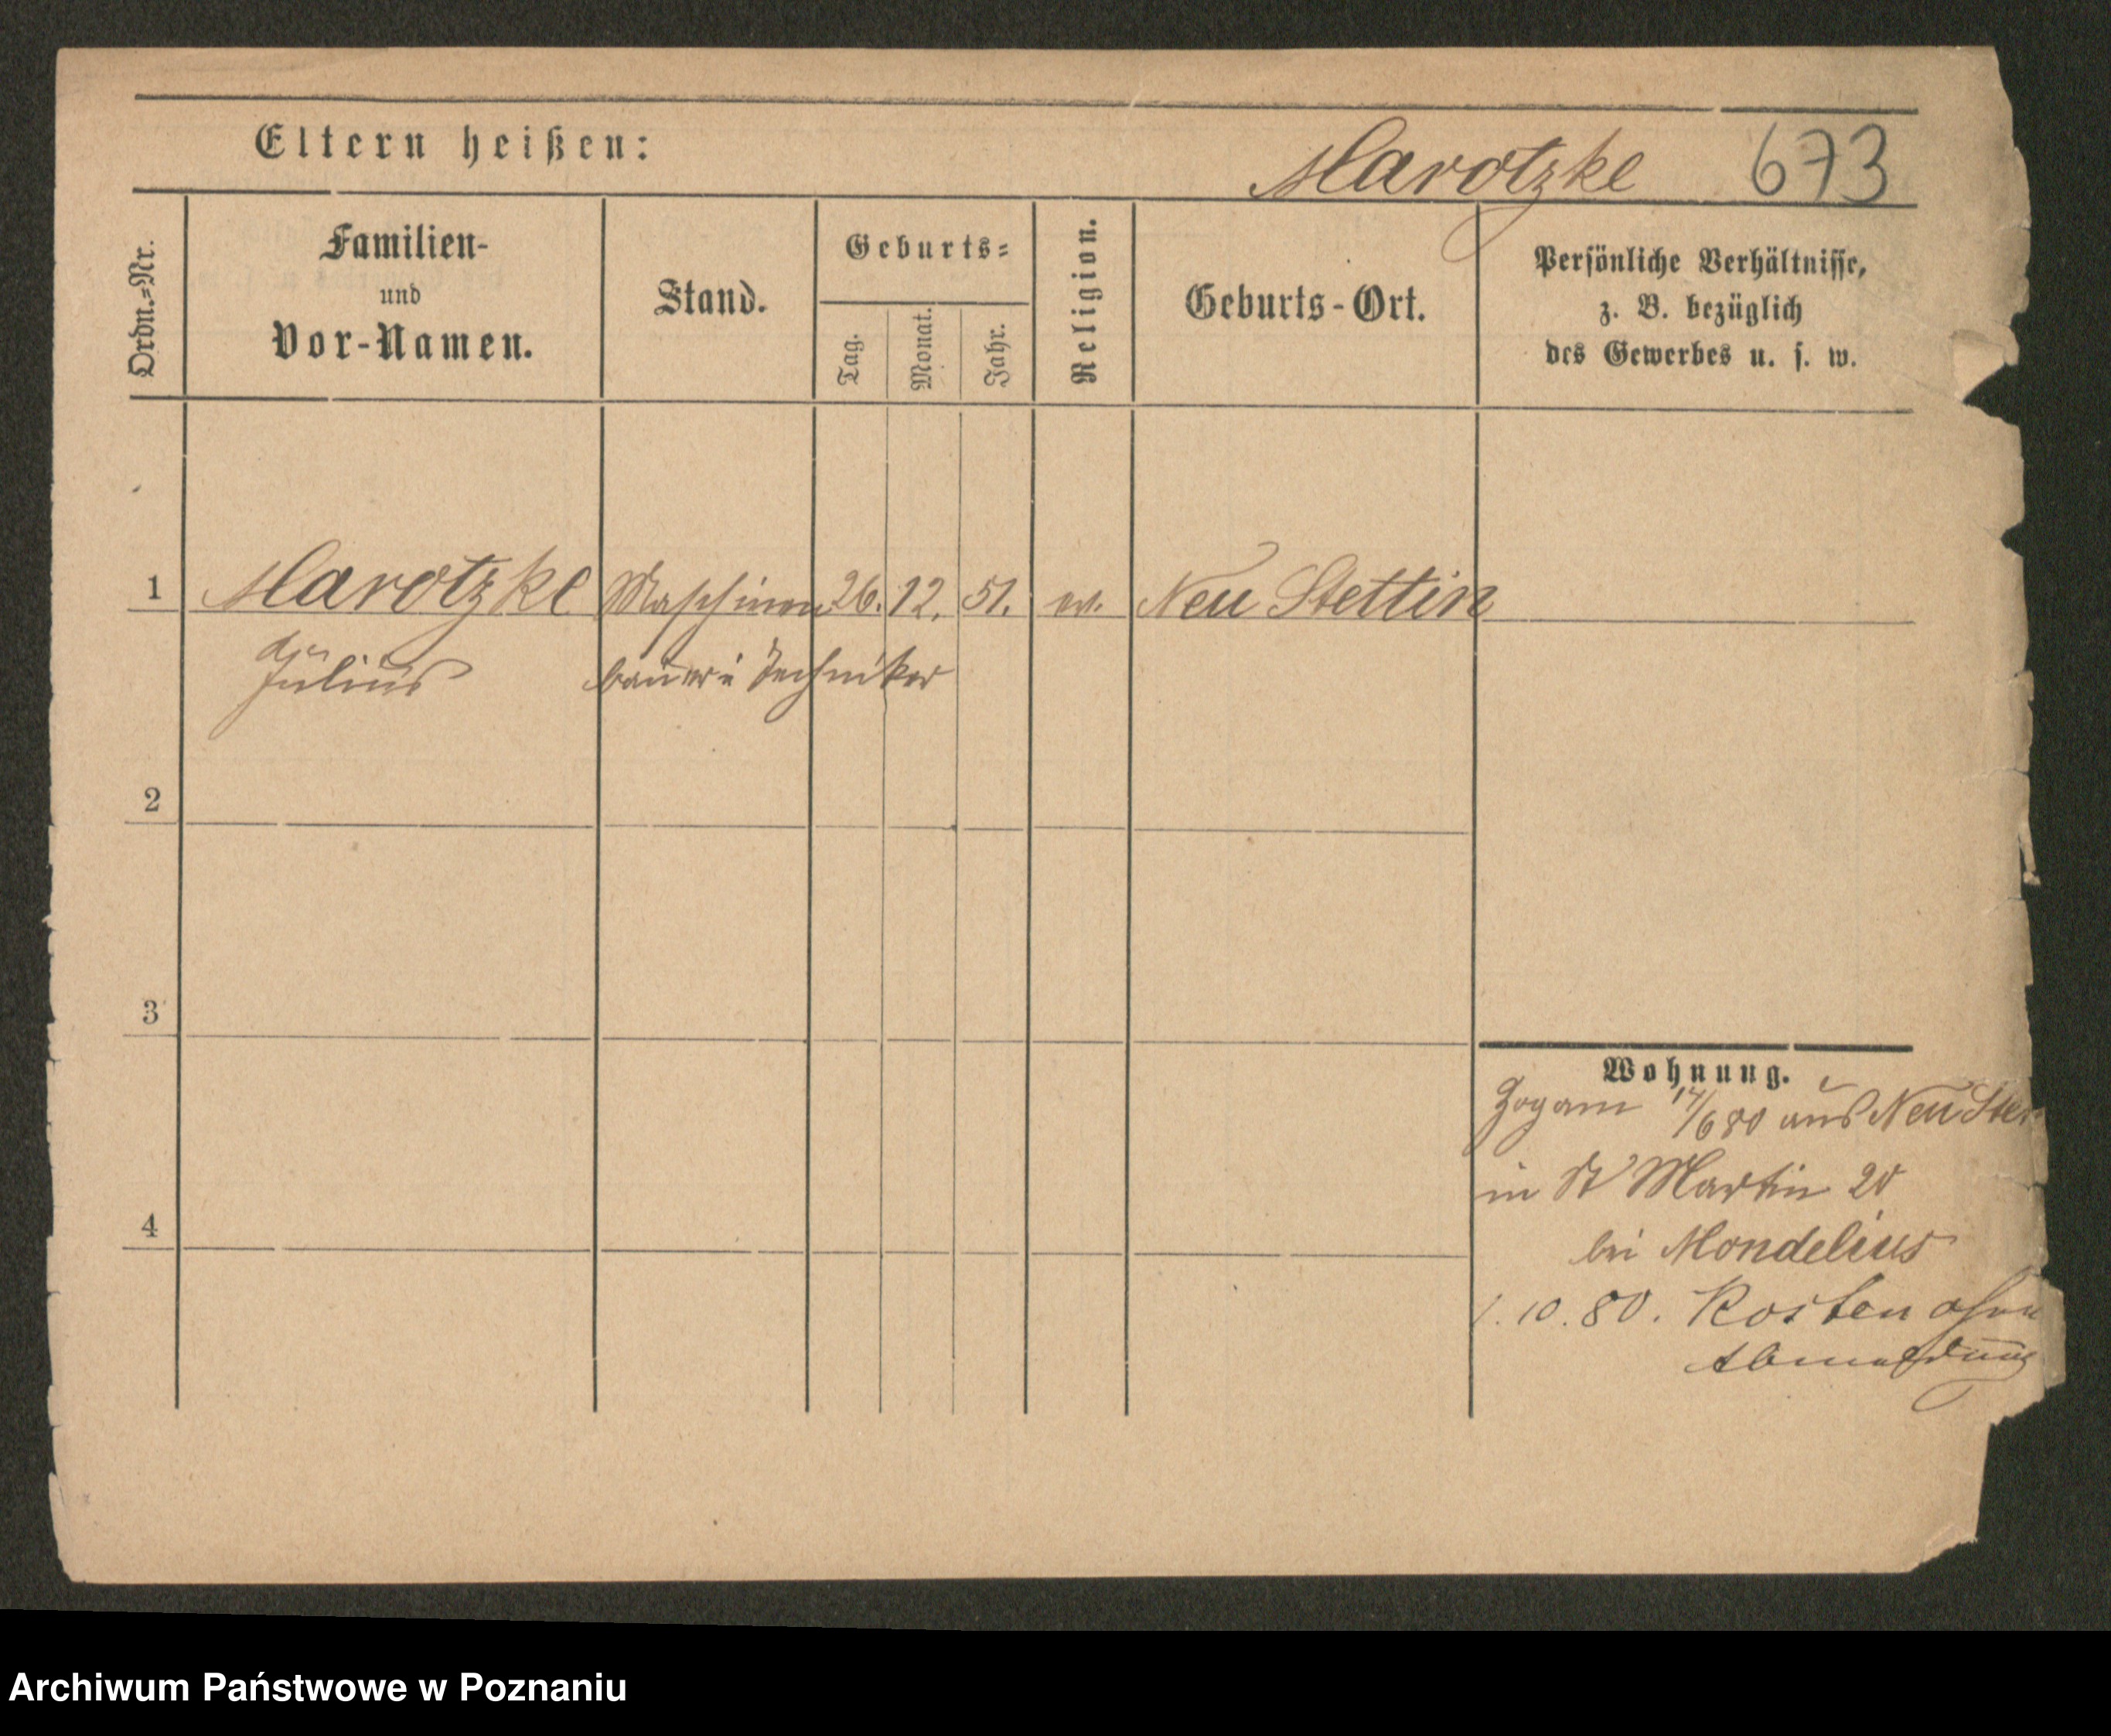 Eltern heißen:
Marotzke 673
Ordn.=Nr.
Familien-
und
Vor-Namen.
Stand.
Geburts=
Tag.
Monat.
Jahr.
Religion.
Geburts-Ort.
Persönliche Verhältnisse,
z. B. bezüglich
des Gewerbes u. s. w.
1 Marotzke Maschinen 26. 12. 51. ev. Neu Stettin
Julius
bauer u Techniker
2
3
4
Wohnung.
Zog am 17/6 80 aus Neu
in St Martin 20
bei Mondelius
1. 10. 80. Kosten ohne
Abmeldung
Archiwum Państwowe w Poznaniu